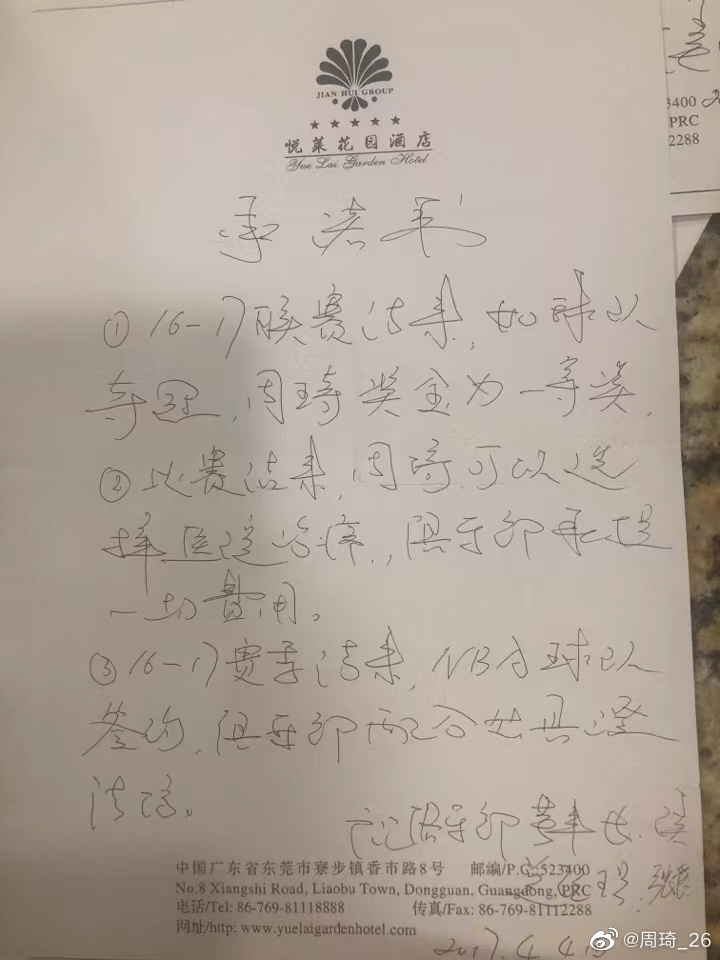 JIAN HUI GROUP
★★★★★
悦莱花园酒店
Yue Lai Garden Hotel
3400
PRC
2288
承诺书
① 16-17联赛结束,如球队
夺冠,周琦奖金为一等奖,
② 比赛结束,周琦可以选
择医送治疗,俱乐部承担
一切费用。
③ 16-17赛季结束,NBA球队
签约,俱乐部配合出具澄
清信。
俱乐部
中国广东省东莞市寮步镇香市路8号 邮编/P.C:523400
No.8 Xiangshi Road, Liaobu Town, Dongguan, Guangdong, PRC
电话/Tel: 86-769-81118888 传真/Fax: 86-769-81112288
网址/http: www.yuelaigardenhotel.com
2017.4.4
@周琦_26